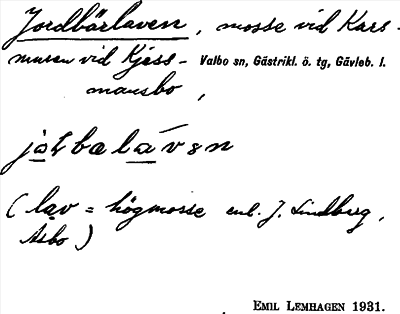 Jordbärlaven, mosse vid Kars-
muren vid Kjess- Valbo sn, Gästrikl. ö. tg, Gävleb. l.
mansbo,
(lav = högmosse enl. J. Lindberg,
Åsbo)
EMIL LEMHAGEN 1931.